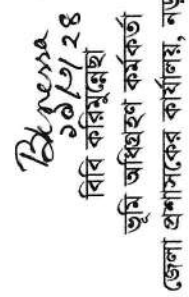 বিবি করিমুন্নেছা
ভূমি অধিগ্রহণ কর্মকর্তা
জেলা প্রশাসকের কার্যালয়,